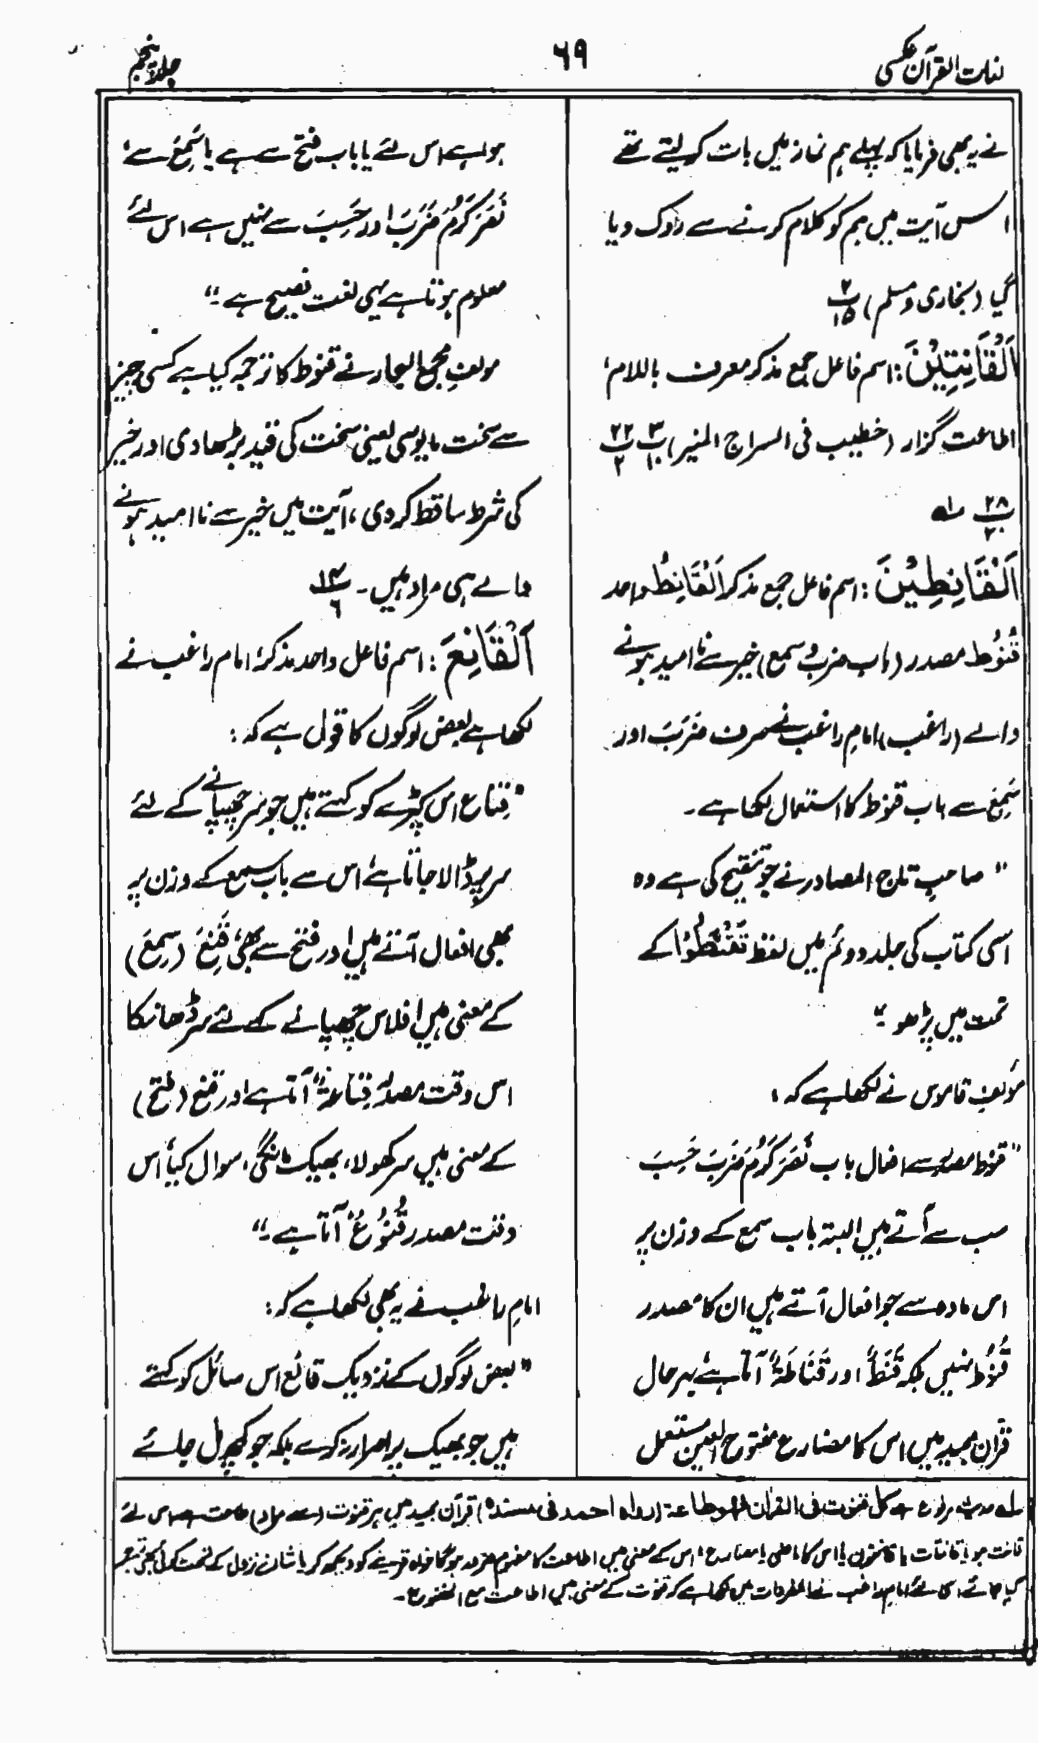 لغات القرآن عکسی
۶۹
جلد پنجم
نے یہ بھی فرمایا کہ پہلے ہم نماز میں بات کر لیتے تھے
اس آیت میں ہم کو کلام کرنے سے روک دیا
گیا (بخاری و مسلم) ۲/۱۵
اَلْقَانِتِیْنَ: اسم فاعل جمع مذکر معرف باللام،
اطاعت گزار (خطیب فی السراج المنیر) ۳/۱۰ ۲۲/۲
۲۸/۲۰ لہ
اَلْقَانِطِیْنَ: اسم فاعل جمع مذکر اَلْقَانِطُ واحد
قُنُوْط مصدر (باب ضرب و سمع) خیر سے نا امید ہونے
والے (راغب) امام راغب نے صرف ضَرَبَ اور
سَمِعَ سے باب قنوط کا استعمال لکھا ہے۔
" صاحب تاج المصادر نے جو تنقیح کی ہے وہ
اسی کتاب کی جلد دوئم میں لفظ تَقْنَطُوْا کے
تحت میں پڑھو ۔"
مؤلف قاموس نے لکھا ہے کہ :
" قنوط مصدر سے افعال باب نَصَرَ کَرُمَ ضَرَبَ حَسِبَ
سب سے آتے ہیں البتہ باب سمع کے وزن پر
اس مادہ سے جو افعال آتے ہیں ان کا مصدر
قُنُوْط نہیں بلکہ قَنَطٌ اور قَنَاطَۃٌ آتا ہے، بہرحال
قرآن مجید میں اس کا مضارع مفتوح العین مستعمل
ہوا ہے اس لئے یا باب فتح سے ہے یا سَمِعَ سے،
نَصَرَ کَرُمَ ضَرَبَ اور حَسِبَ سے نہیں ہے اس لئے
معلوم ہوتا ہے یہی لغت فصیح ہے ۔"
مولف مجمع البحار نے قنوط کا ترجمہ کیا ہے کسی چیز
سے سخت مایوسی یعنی سخت کی قید بڑھا دی اور خیر
کی شرط ساقط کر دی، آیت میں خیر سے نا امید ہونے
والے ہی مراد ہیں۔ ۱۴/۶
اَلْقَانِعَ: اسم فاعل واحد مذکر، امام راغب نے
لکھا ہے بعض لوگوں کا قول ہے کہ :
" قِناع اس کپڑے کو کہتے ہیں جو سر چھپانے کے لئے
سر پر ڈالا جاتا ہے، اس سے باب سمع کے وزن پر
بھی افعال آتے ہیں اور فتح سے بھی، قَنِعَ (سمِعَ)
کے معنی ہیں افلاس چھپانے کے لئے سر ڈھانکا
اس وقت مصدر قِنَاعَۃٌ آتا ہے اور قنع (فتح)
کے معنی ہیں سر کھولا، بھیک مانگی، سوال کیا، اس
وقت مصدر قُنُوْعٌ آتا ہے ۔"
امام راغب نے یہ بھی لکھا ہے کہ :
" بعض لوگوں کے نزدیک قانع اس سائل کو کہتے
ہیں جو بھیک پر اصرار نہ کرے بلکہ جو کچھ مل جائے
لہ حدیث مرفوع ہے کل قنوت فی القرآن فھو طاعۃ (رواہ احمد فی مسندہ) قرآن مجید میں ہر قنوت سے مراد طاعت ہے اس لئے
قانت ہو یا قانتات یا قانتون یا اس کا ماضی یا مضارع، اس کے معنی میں اطاعت کا مفہوم ضرور ہوگا خواہ قرینے کو دیکھ کر یا شان نزول کے تحت کوئی بھی ترجمہ
کیا جائے، امام راغب نے المفردات میں لکھا ہے کہ قنوت کے معنی ہیں اطاعت مع الخضوع۔